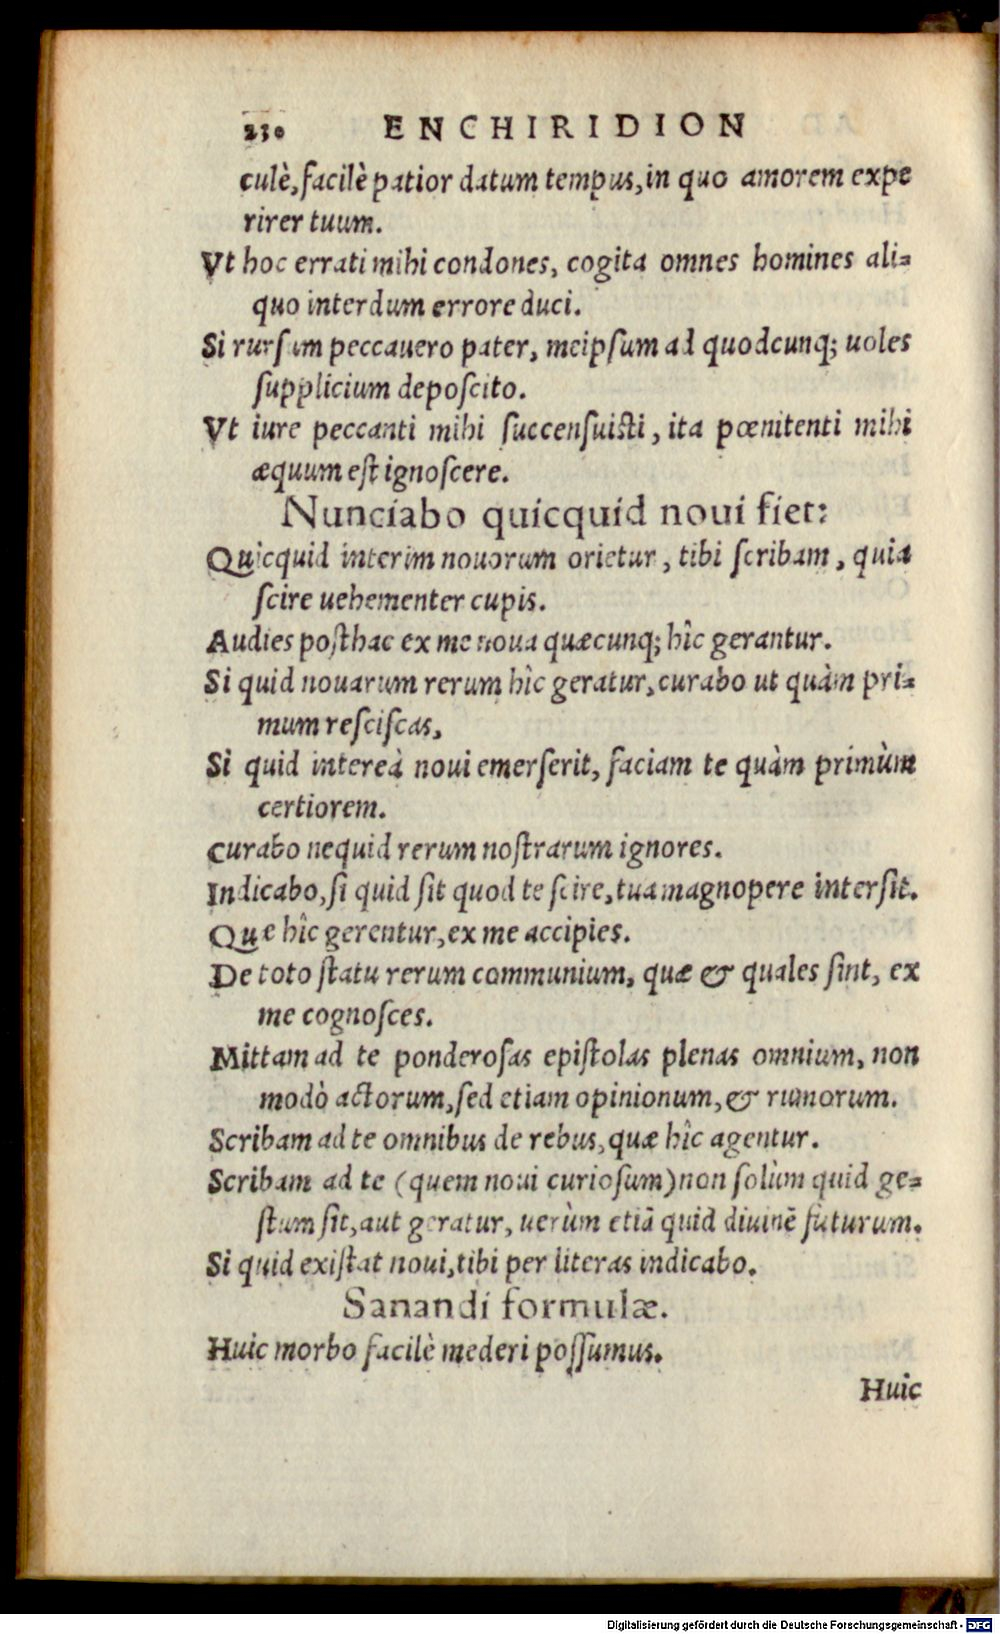 230 ENCHIRIDION
culè, facilè patior datum tempus, in quo amorem expe
rirer tuum.
Vt hoc errati mihi condones, cogita omnes homines ali=
quo interdum errore duci.
Si rursum peccauero pater, meipsum ad quodcunq; uoles
supplicium deposcito.
Vt iure peccanti mihi succensuisti, ita pœnitenti mihi
æquum est ignoscere.
Nunciabo quicquid noui fiet:
Quicquid interim nouorum orietur, tibi scribam, quia
scire uehementer cupis.
Audies posthac ex me noua quæcunq; hîc gerantur.
Si quid nouarum rerum hîc geratur, curabo ut quàm pri=
mum resciscas,
Si quid intereà noui emerserit, faciam te quàm primùm
certiorem.
Curabo nequid rerum nostrarum ignores.
Indicabo, si quid sit quod te scire, tua magnopere intersit.
Quæ hîc gerentur, ex me accipies.
De toto statu rerum communium, quæ & quales sint, ex
me cognosces.
Mittam ad te ponderosas epistolas plenas omnium, non
modò actorum, sed etiam opinionum, & rumorum.
Scribam ad te omnibus de rebus, quæ hîc agentur.
Scribam ad te (quem noui curiosum) non solùm quid ge=
stum sit, aut geratur, uerùm etiā quid diuinē futurum.
Si quid existat noui, tibi per literas indicabo.
Sanandi formulæ.
Huic morbo facilè mederi possumus.
Huic
Digitalisierung gefördert durch die Deutsche Forschungsgemeinschaft - DFG